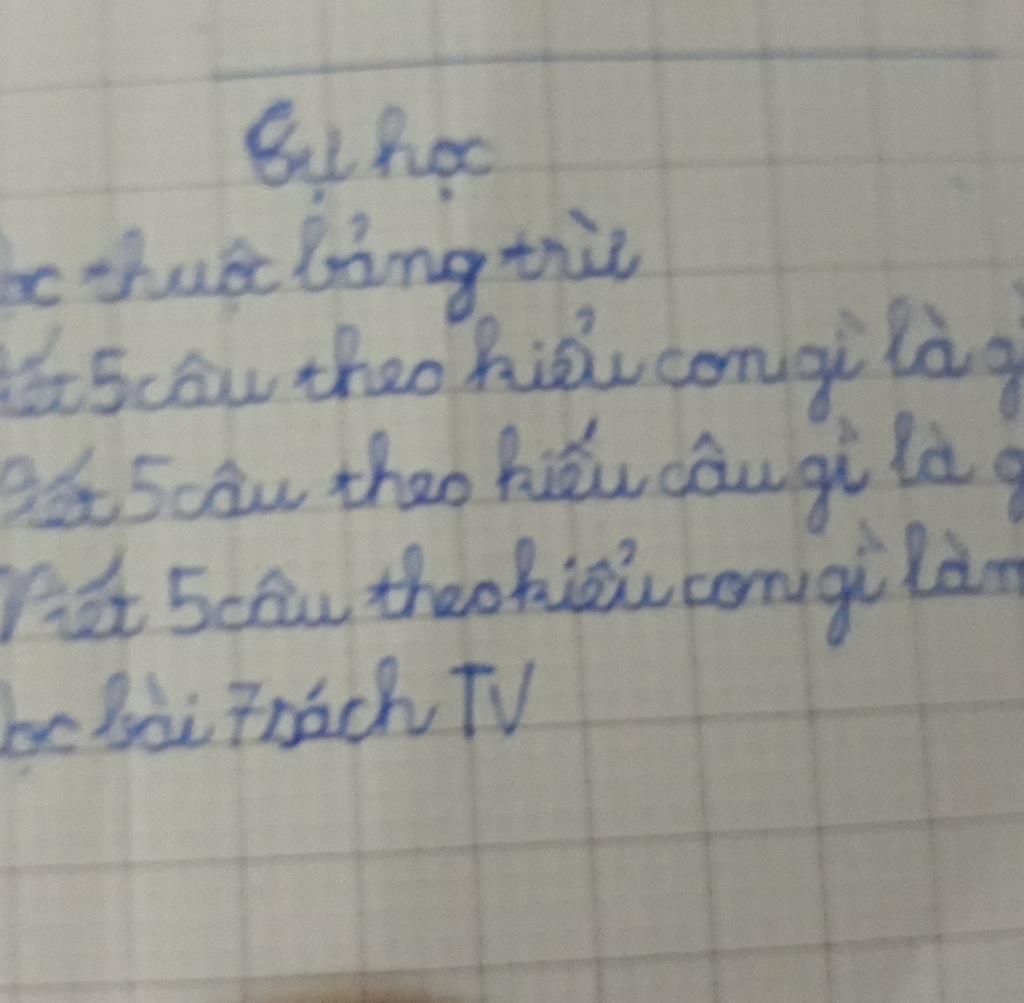 Sự học
ọc thuộc bảng trừ
iết 5 câu theo kiểu con gì là gì
Viết 5 câu theo kiếu câu gì là g
Viết 5 câu theo kiểu con gì làm
ọc bài 7 sách TV